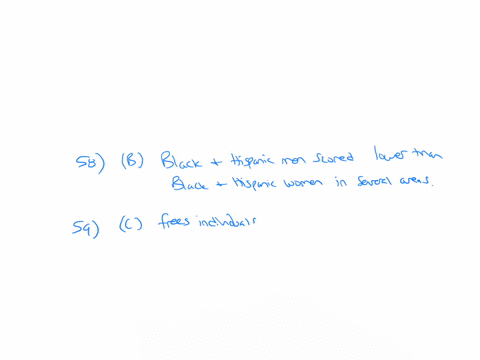 58) (B) Black + Hispanic men scored lower than
Black + Hispanic women in several areas.
59) (C) frees individuals